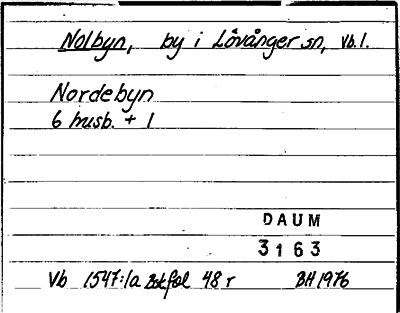 Nolbyn, by i Lövånger sn, Vb.l.
Nordebyn
6 husb. + 1
DAUM
3163
Vb 1547:1a Bskfol 48 r BH 1976